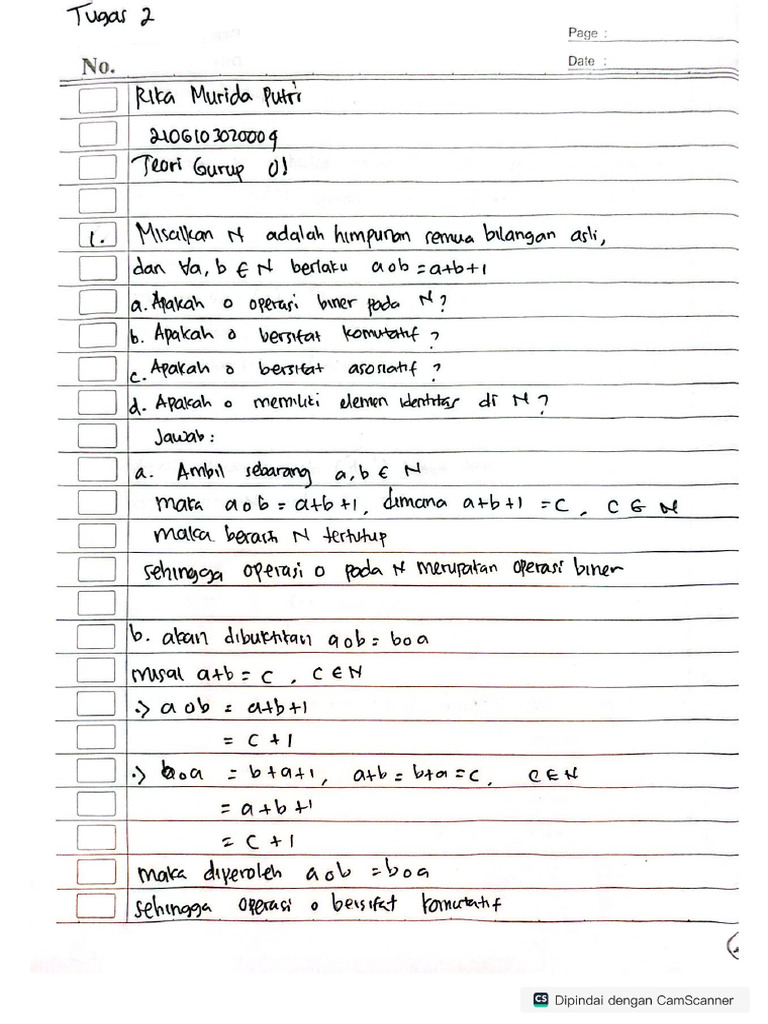 Tugas 2
Page :
No.
Date :
Rita Murida Putri
2106103020009
Teori Gurup 01
1. Misalkan N adalah himpunan semua bilangan asli,
dan ∀a, b ∈ N berlaku a o b = a+b+1
a. Apakah o operasi biner pada N?
b. Apakah o bersifat komutatif?
c. Apakah o bersifat asosiatif?
d. Apakah o memiliki elemen identitas di N?
Jawab:
a. Ambil sebarang a, b ∈ N
maka a o b = a+b+1, dimana a+b+1 = c, c ∈ N
maka berarti N tertutup
sehingga operasi o pada N merupakan operasi biner
b. akan dibuktikan a o b = b o a
misal a+b = c, c ∈ N
·> a o b = a+b+1
= c + 1
·> b o a = b+a+1, a+b = b+a = c, c ∈ N
= a+b+1
= c + 1
maka diperoleh a o b = b o a
sehingga operasi o bersifat komutatif
CS Dipindai dengan CamScanner